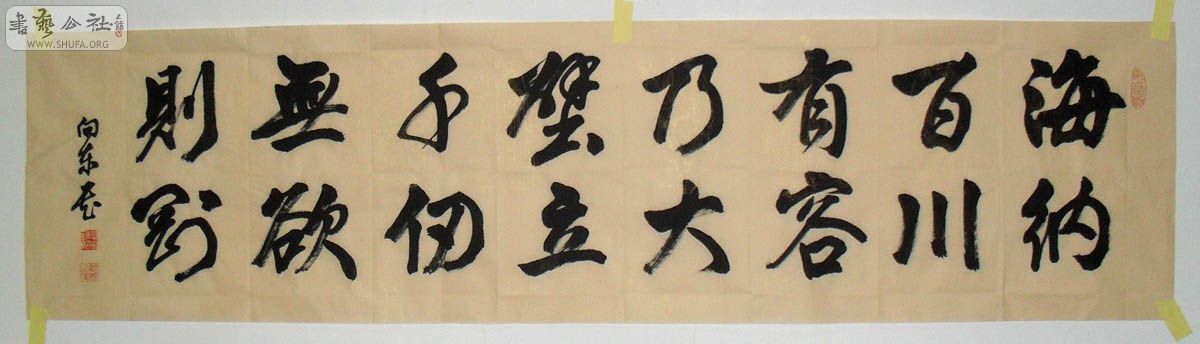 海納
百川
有容
乃大
壁立
千仞
無欲
則剛
向東書
書藝公社
WWW.SHUFA.ORG